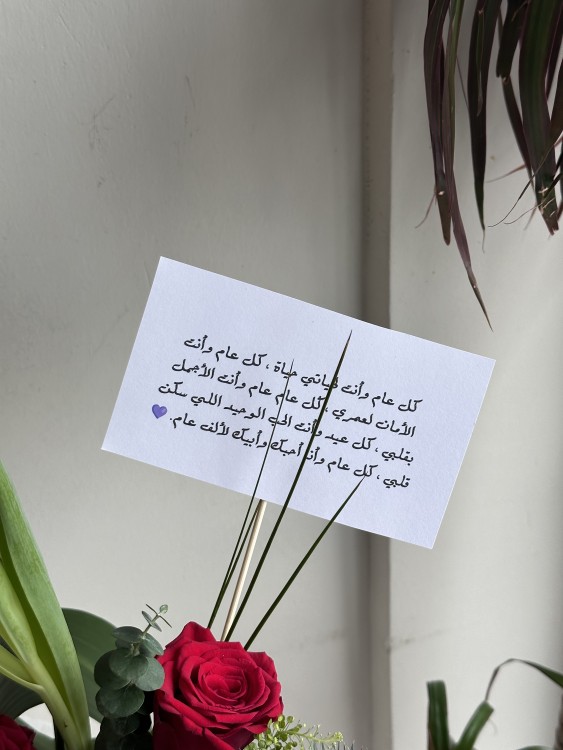 كل عام وأنت لحياتي حياة ، كل عام وأنت
الأمان لعمري ، كل عام عام وأنت الأجمل
بقلبي ، كل عيد وأنت الحب الوحيد اللي سكن
قلبي ، كل عام وأنا أحبك وأبيك لألف عام. 💜